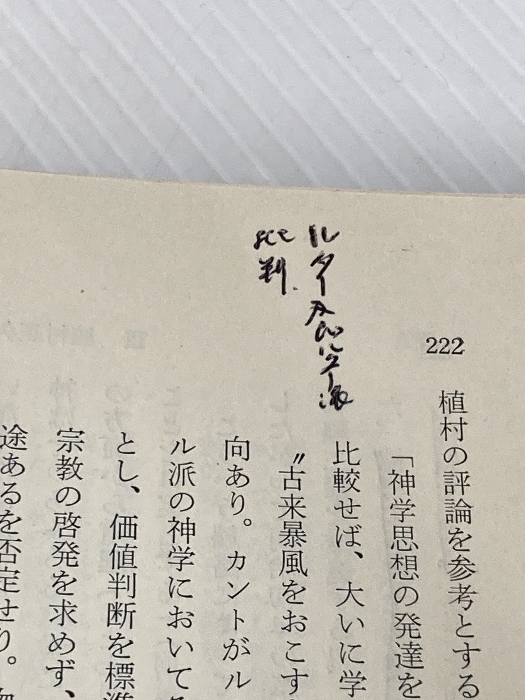 222
ル
判
植村の評論を参考とする
「神学思想の発達を
比較せば、大いに学
〝古来暴風をおこす
向あり。カントがル
ル派の神学において
とし、価値判断を標準
宗教の啓発を求めず、
途あるを否定せり。